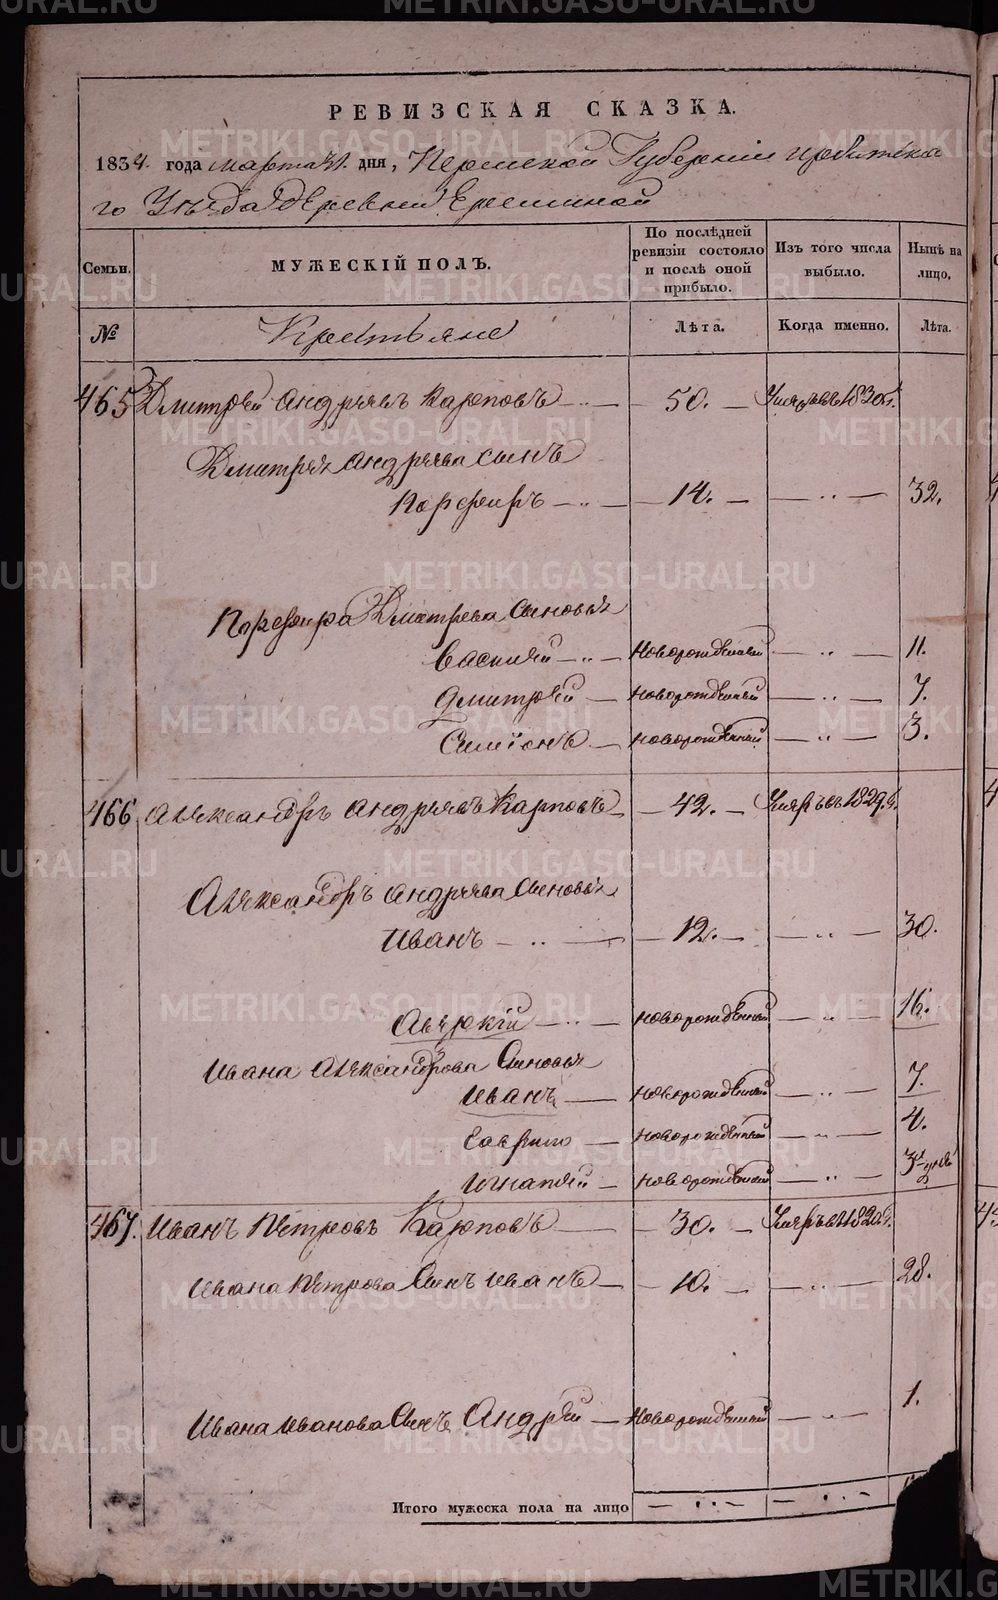 РЕВИЗСКАЯ СКАЗКА.
1834. года марта 31. дня, Пермской Губернии ирбитска
го Уѣзда деревни Ереминой
Семьи. МУЖЕСКІЙ ПОЛЪ. По послѣдней ревизіи состояло и послѣ оной прибыло. Изъ того числа выбыло. Нынѣ на лицо.
№ Крестьяне Лѣта. Когда именно. Лѣта.
465 Дмитрей андреявъ Карповъ 50. Умеръ въ 1820 г.
Дмитрия андреява сынъ
Порфиръ 14. 32.
Порфира Дмитрева сыновья
Василий Новорожденный 11.
Дмитрей новорожденный 7.
Симіонъ новорожденный 3.
466 Александръ андреявъ Карповъ 42. Умеръ въ 1829 г.
Александръ андреява сыновья
Иванъ 12. 30.
новорожденный 16.
Ивана александрова сыновья
Иванъ новорожденный 7.
Гаврило новорожденный 4.
Игнатей новорожденный
467. Иванъ Петровъ Карповъ 30. Умеръ въ 1820 г.
Ивана Петрова Сынъ иванъ 10. 28.
Ивана иванова Сынъ Андрей новорожденный 1.
Итого мужеска пола на лицо
METRIKI.GASO-URAL.RU